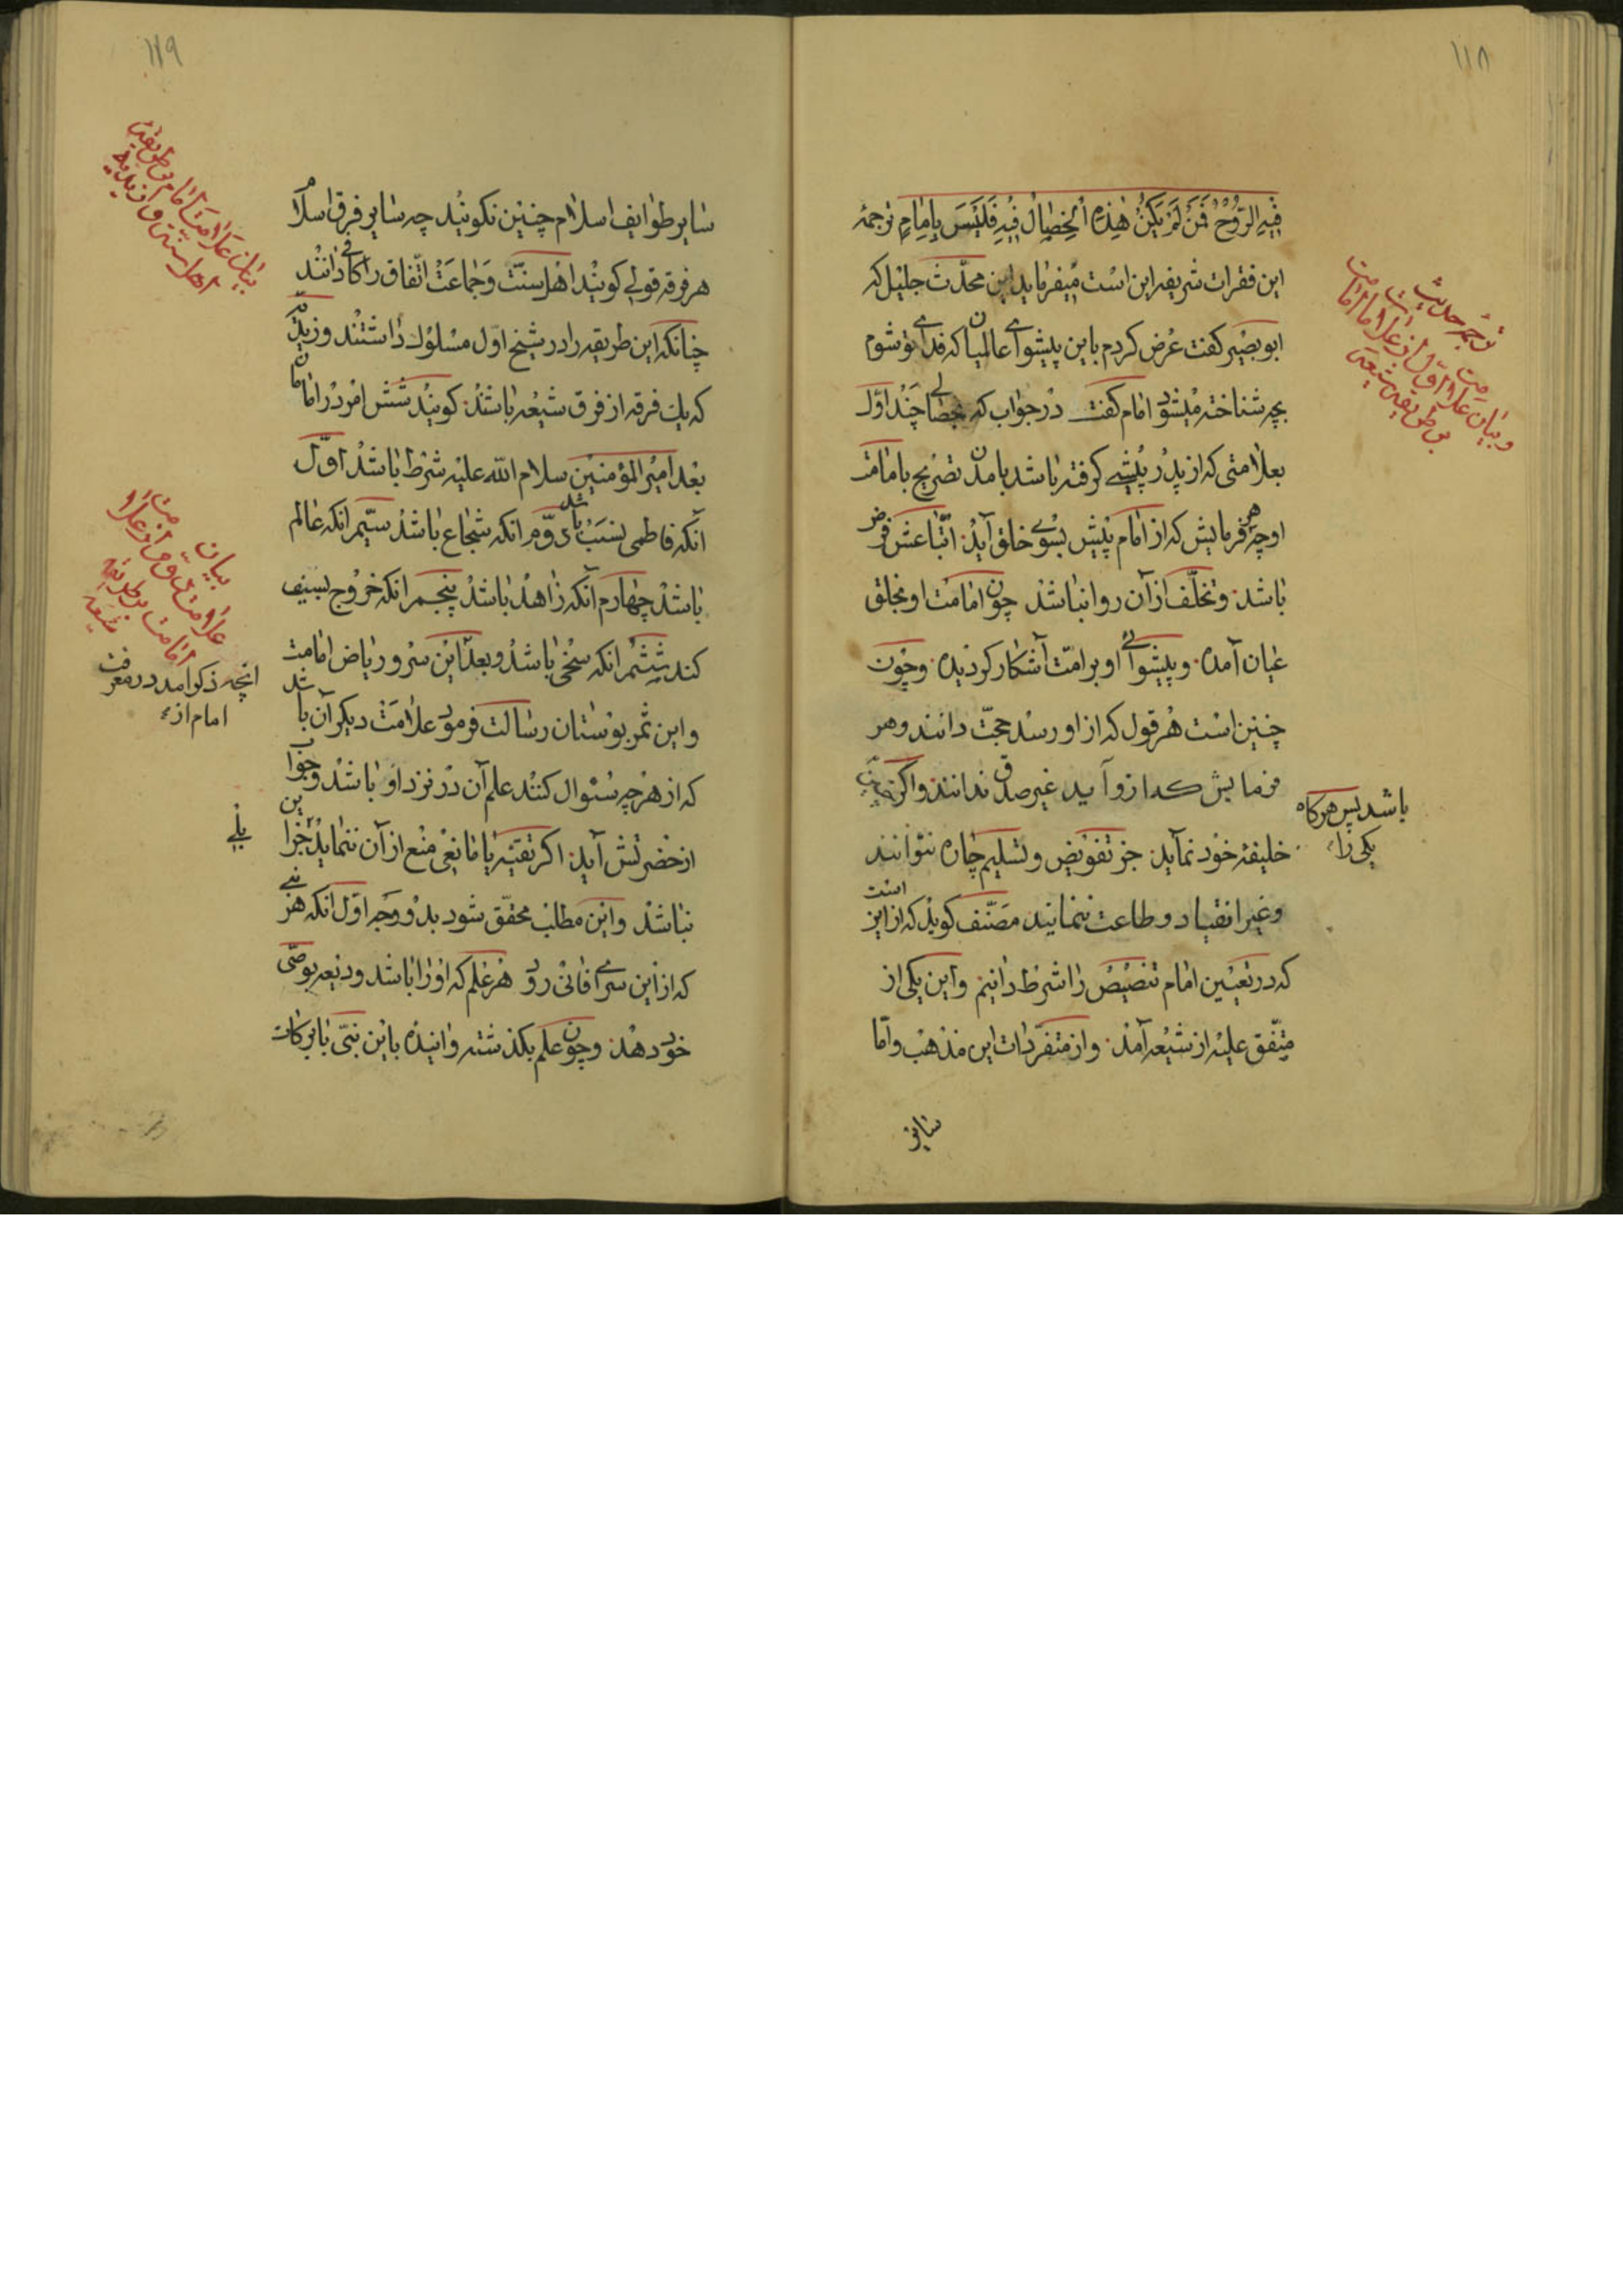 ۱۱۸
فِیهِ الرُّوحُ فَمَنْ لَمْ یَکُنْ هٰذِهِ الْخِصٰالُ فِیهِ فَلَیْسَ بِاِمٰامٍ ترجمهٔ
این فقرات شریفه این است میفرماید این محدّث جلیل که
ابو بصیر کفت عرض کردم باین پیشوای عالمیان که فدای تو شوم
بچه شناخته میشود امام کفت در جواب که بخصالی چند اوّل
بعلامتی که از پدر پیشی کرفته باشد بآمدن تصریح بامامت
او چه هر فرمایش که از امام پیش بسوی خلق آید اتّباعش فرض
باشد و تخلّف از آن روا نباشد چون امامت او بخلق
عیان آمده و پیشوائی او بر امّت آشکار کردیده و چون
چنین است هر قول که از او رسد حجّت دانند و هر
فرمایش که از و آید غیر صدق ندانند و اکر
خلیفهٔ خود نماید جز تفویض و تسلیم چاره نتوانند
و غیر انقیاد و طاعت ننمایند مصنّف کوید که از این است
که در تعیین امام تنصیص را شرط دانیم و این یکی از
متّفق علیه از شیعه آمد و از متفرّدات این مذهب و امّا
سایر
ترجمهٔ حدیث
و بیان علامت اوّل از علامات امامت
بر طریقه شیعه
باشد پس هرکاه
یکی را
۱۱۹
سایر طوایف اسلام چنین نکویند چه سایر فرق اسلام
هر فرقه قولی کویند اهل سنّت و جماعت اتّفاق را کافی دانند
چنانکه این طریقه را در شیخ اوّل مسلوک داشتند و زیدیّه
که یک فرقه از فرق شیعه باشند کویند شش امر در امامان
بعد امیر المؤمنین سلام الله علیه شرط باشد اوّل
آنکه فاطمی نسب باشد دوّم انکه شجاع باشد سیّم انکه عالم
باشد چهارم آنکه زاهد باشد پنجم انکه خروج بسیف
کند ششم انکه سخی باشد و بعد این سرو ریاض امامت
و این ثمر بوستان رسالت فرمود علامت دیکر آن باشد
که از هر چه سئوال کنند علم آن در نزد او باشد و جواب
از حضرتش آید اکر تقیّه یا مانعی منع از آن ننماید جز این
نباشد و این مطلب محقّق شود بدو وجه اوّل انکه هر نبی
که از این سرای فانی رود هر علم که او را باشد ودیعه بوصّی
خود دهد و چون علم بکذشته و آنیده باین نبّی با برکات
بیان علامت امام بر طریقه
اهل سنّت و زیدیه
بیان
علامت دوّم از علامات
امامت بر طریقه
شیعه
انچه ذکر امد در معرفت
امام از
بلی